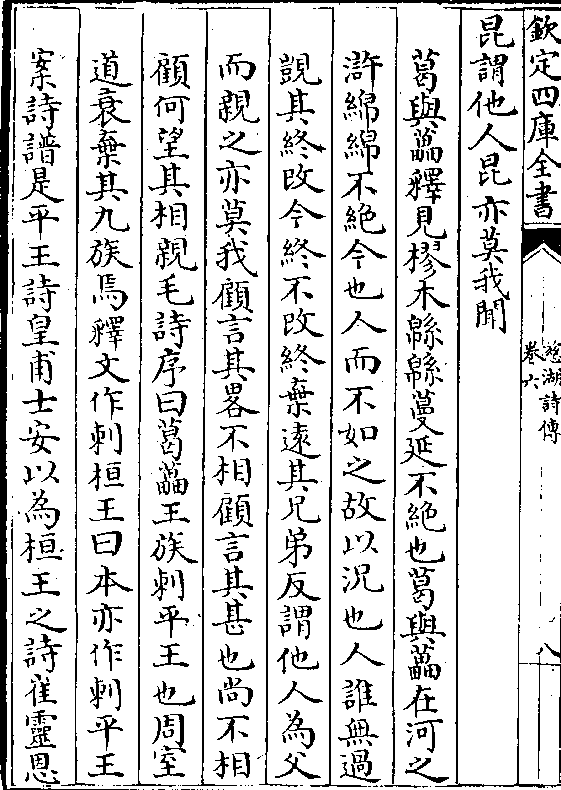 欽定四庫全書
慈湖詩傳
卷六
八
昆謂他人昆亦莫我聞
葛與藟釋見樛木緜緜蔓延不絶也葛與藟在河之
滸綿綿不絶今也人而不如之故以況也人誰無過
覬其終改今終不改終棄遠其兄弟反謂他人為父
而親之亦莫我顧言其畧不相顧言其甚也尚不相
顧何望其相親毛詩序曰葛藟王族刺平王也周室
道衰棄其九族焉釋文作刺桓王曰本亦作刺平王
案詩譜是平王詩皇甫士安以為桓王之詩崔靈恩